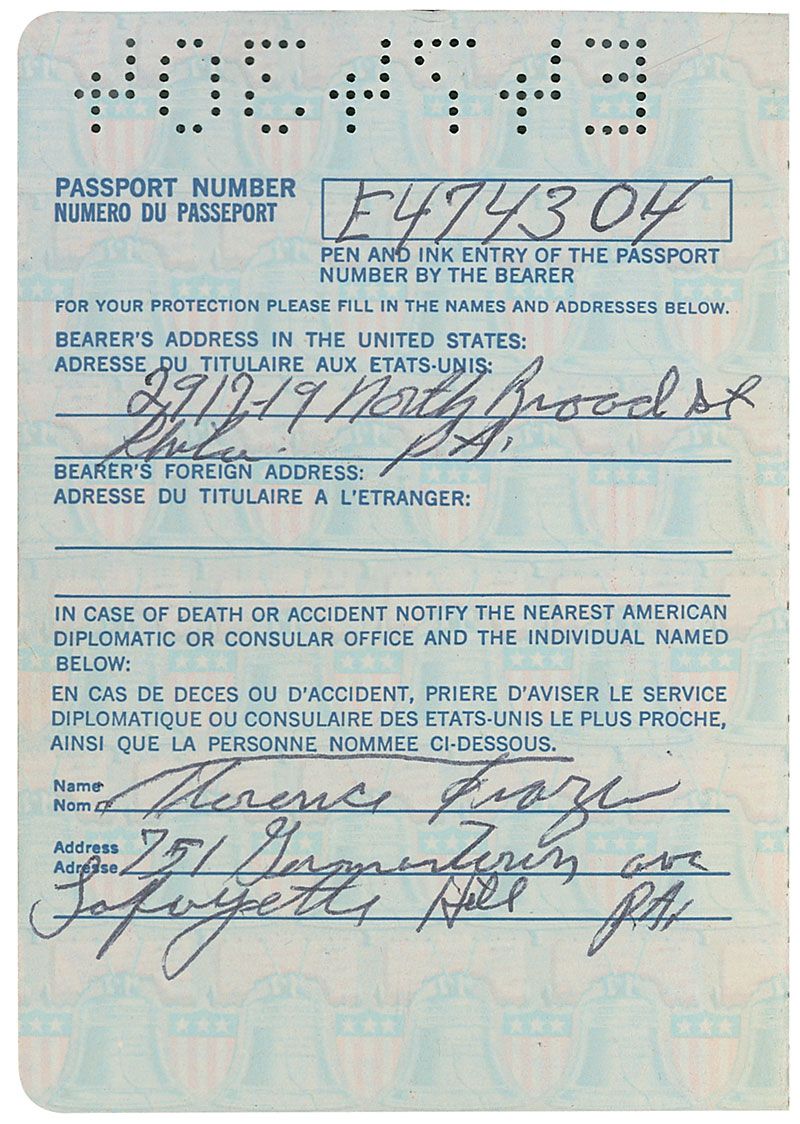 E474304
PASSPORT NUMBER
NUMERO DU PASSEPORT
E474304
PEN AND INK ENTRY OF THE PASSPORT
NUMBER BY THE BEARER
FOR YOUR PROTECTION PLEASE FILL IN THE NAMES AND ADDRESSES BELOW.
BEARER'S ADDRESS IN THE UNITED STATES:
ADRESSE DU TITULAIRE AUX ETATS-UNIS:
2917-19 North Broad St
Phila. PA.
BEARER'S FOREIGN ADDRESS:
ADRESSE DU TITULAIRE A L'ETRANGER:
IN CASE OF DEATH OR ACCIDENT NOTIFY THE NEAREST AMERICAN
DIPLOMATIC OR CONSULAR OFFICE AND THE INDIVIDUAL NAMED
BELOW:
EN CAS DE DECES OU D'ACCIDENT, PRIERE D'AVISER LE SERVICE
DIPLOMATIQUE OU CONSULAIRE DES ETATS-UNIS LE PLUS PROCHE,
AINSI QUE LA PERSONNE NOMMEE CI-DESSOUS.
Name
Nom Florence Frazier
Address
Adresse 751 Germantown ave
Lafayette Hill PA.